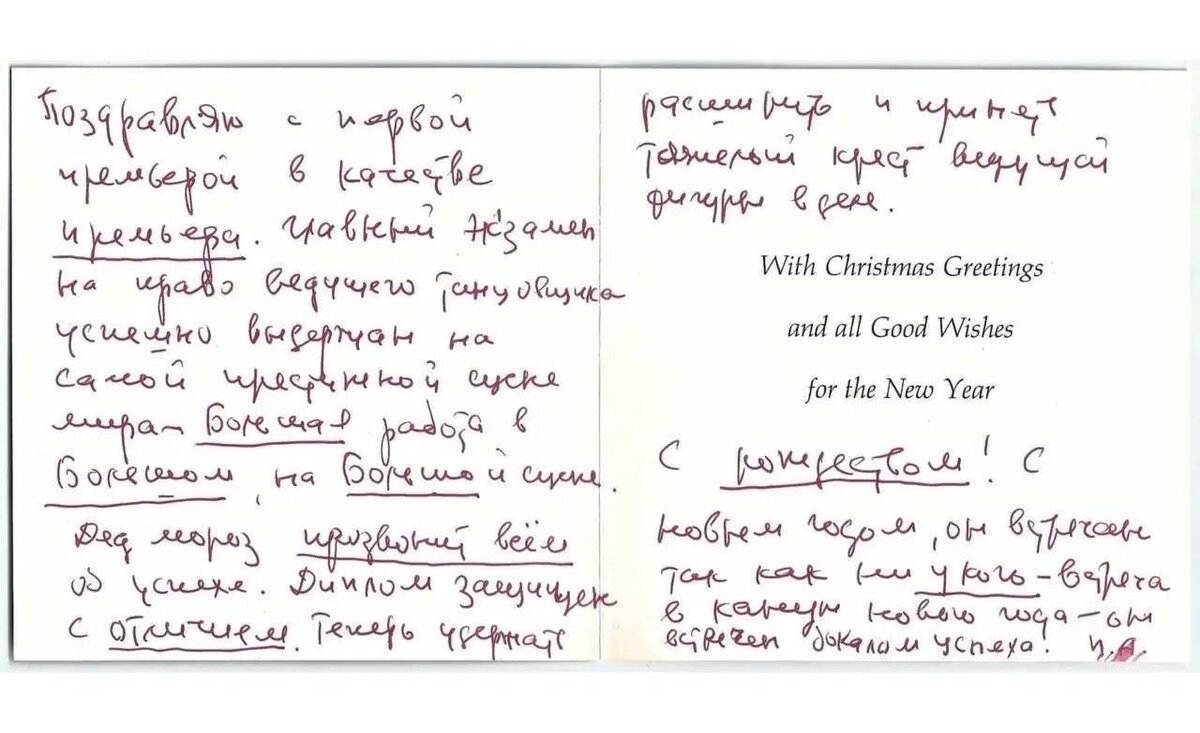 Поздравляю с первой
премьерой в качестве
премьера. Главный экзамен
на право ведущего танцовщика
успешно выдержан на
самой престижной сцене
мира – Большая работа в
Большом, на Большой сцене.
Дед мороз прозвонит всем
об успехе. Диплом защищен
с отличием. Теперь удержать
расширить и принять
тяжелый крест ведущей
фигуры в деле.
With Christmas Greetings
and all Good Wishes
for the New Year
С рождеством! С
новым годом, он встречен
так как ни у кого – встреча
в канун нового года – он
встречен бокалом успеха!